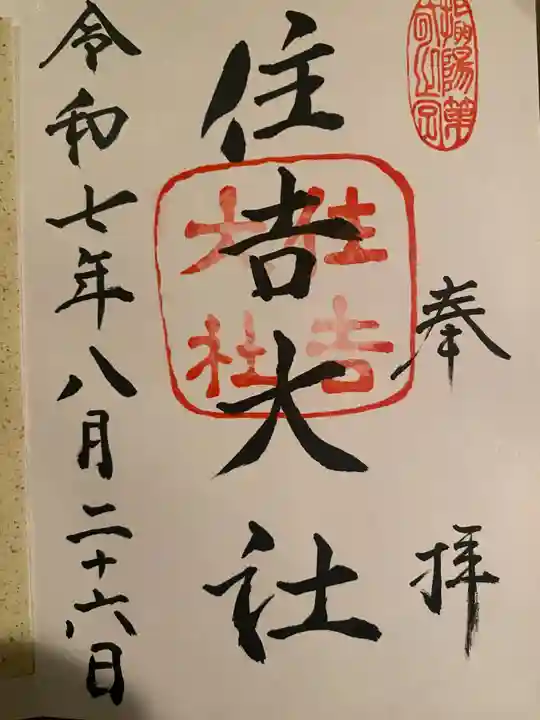 奉拝
住吉大社
住吉
大社
令和七年八月二十六日